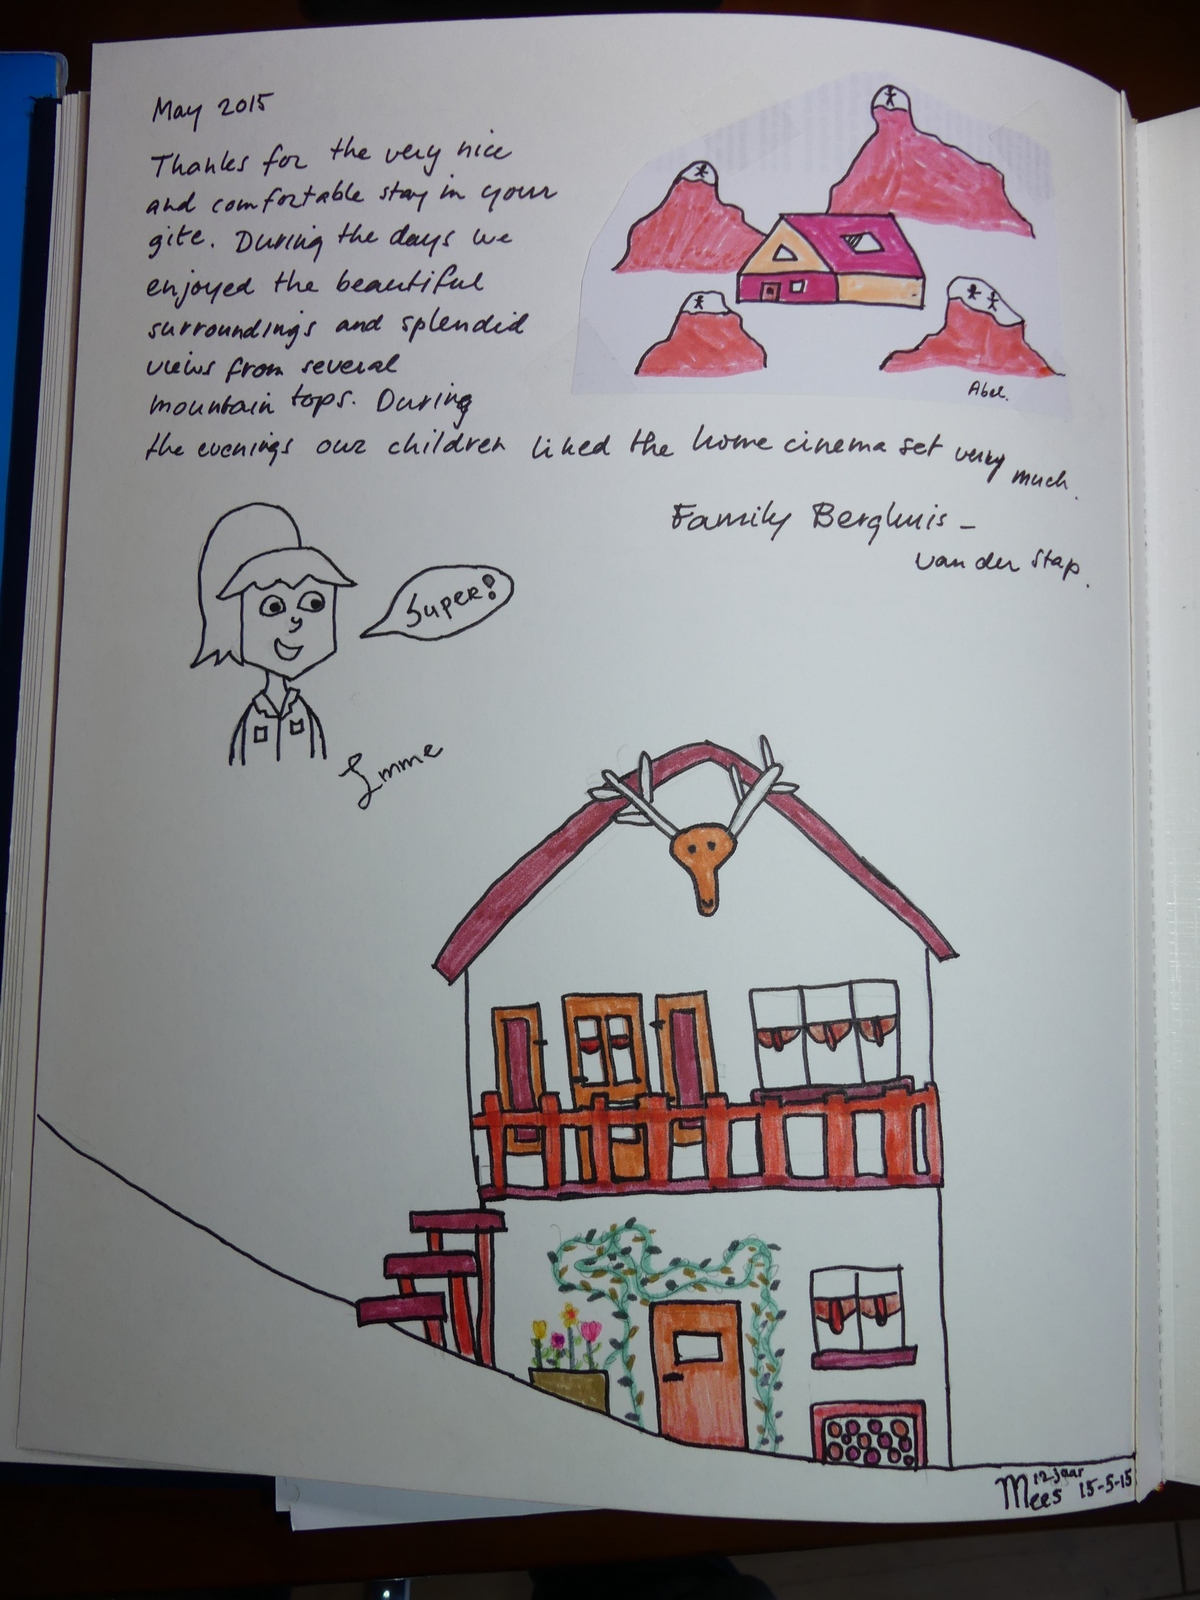 May 2015
Thanks for the very nice
and comfortable stay in your
gite. During the days we
enjoyed the beautiful
surroundings and splendid
views from several
mountain tops. During
the evenings our children liked the home cinema set very much.
Abel.
Family Berghuis -
van der Stap.
Super!
Imme
Mees 12 jaar 15-5-15